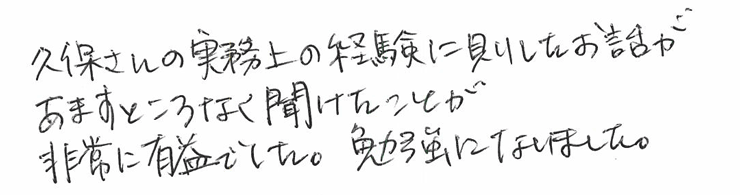 久保さんの実務上の経験に則したお話が
あますところなく聞けたことが
非常に有益でした。勉強になりました。